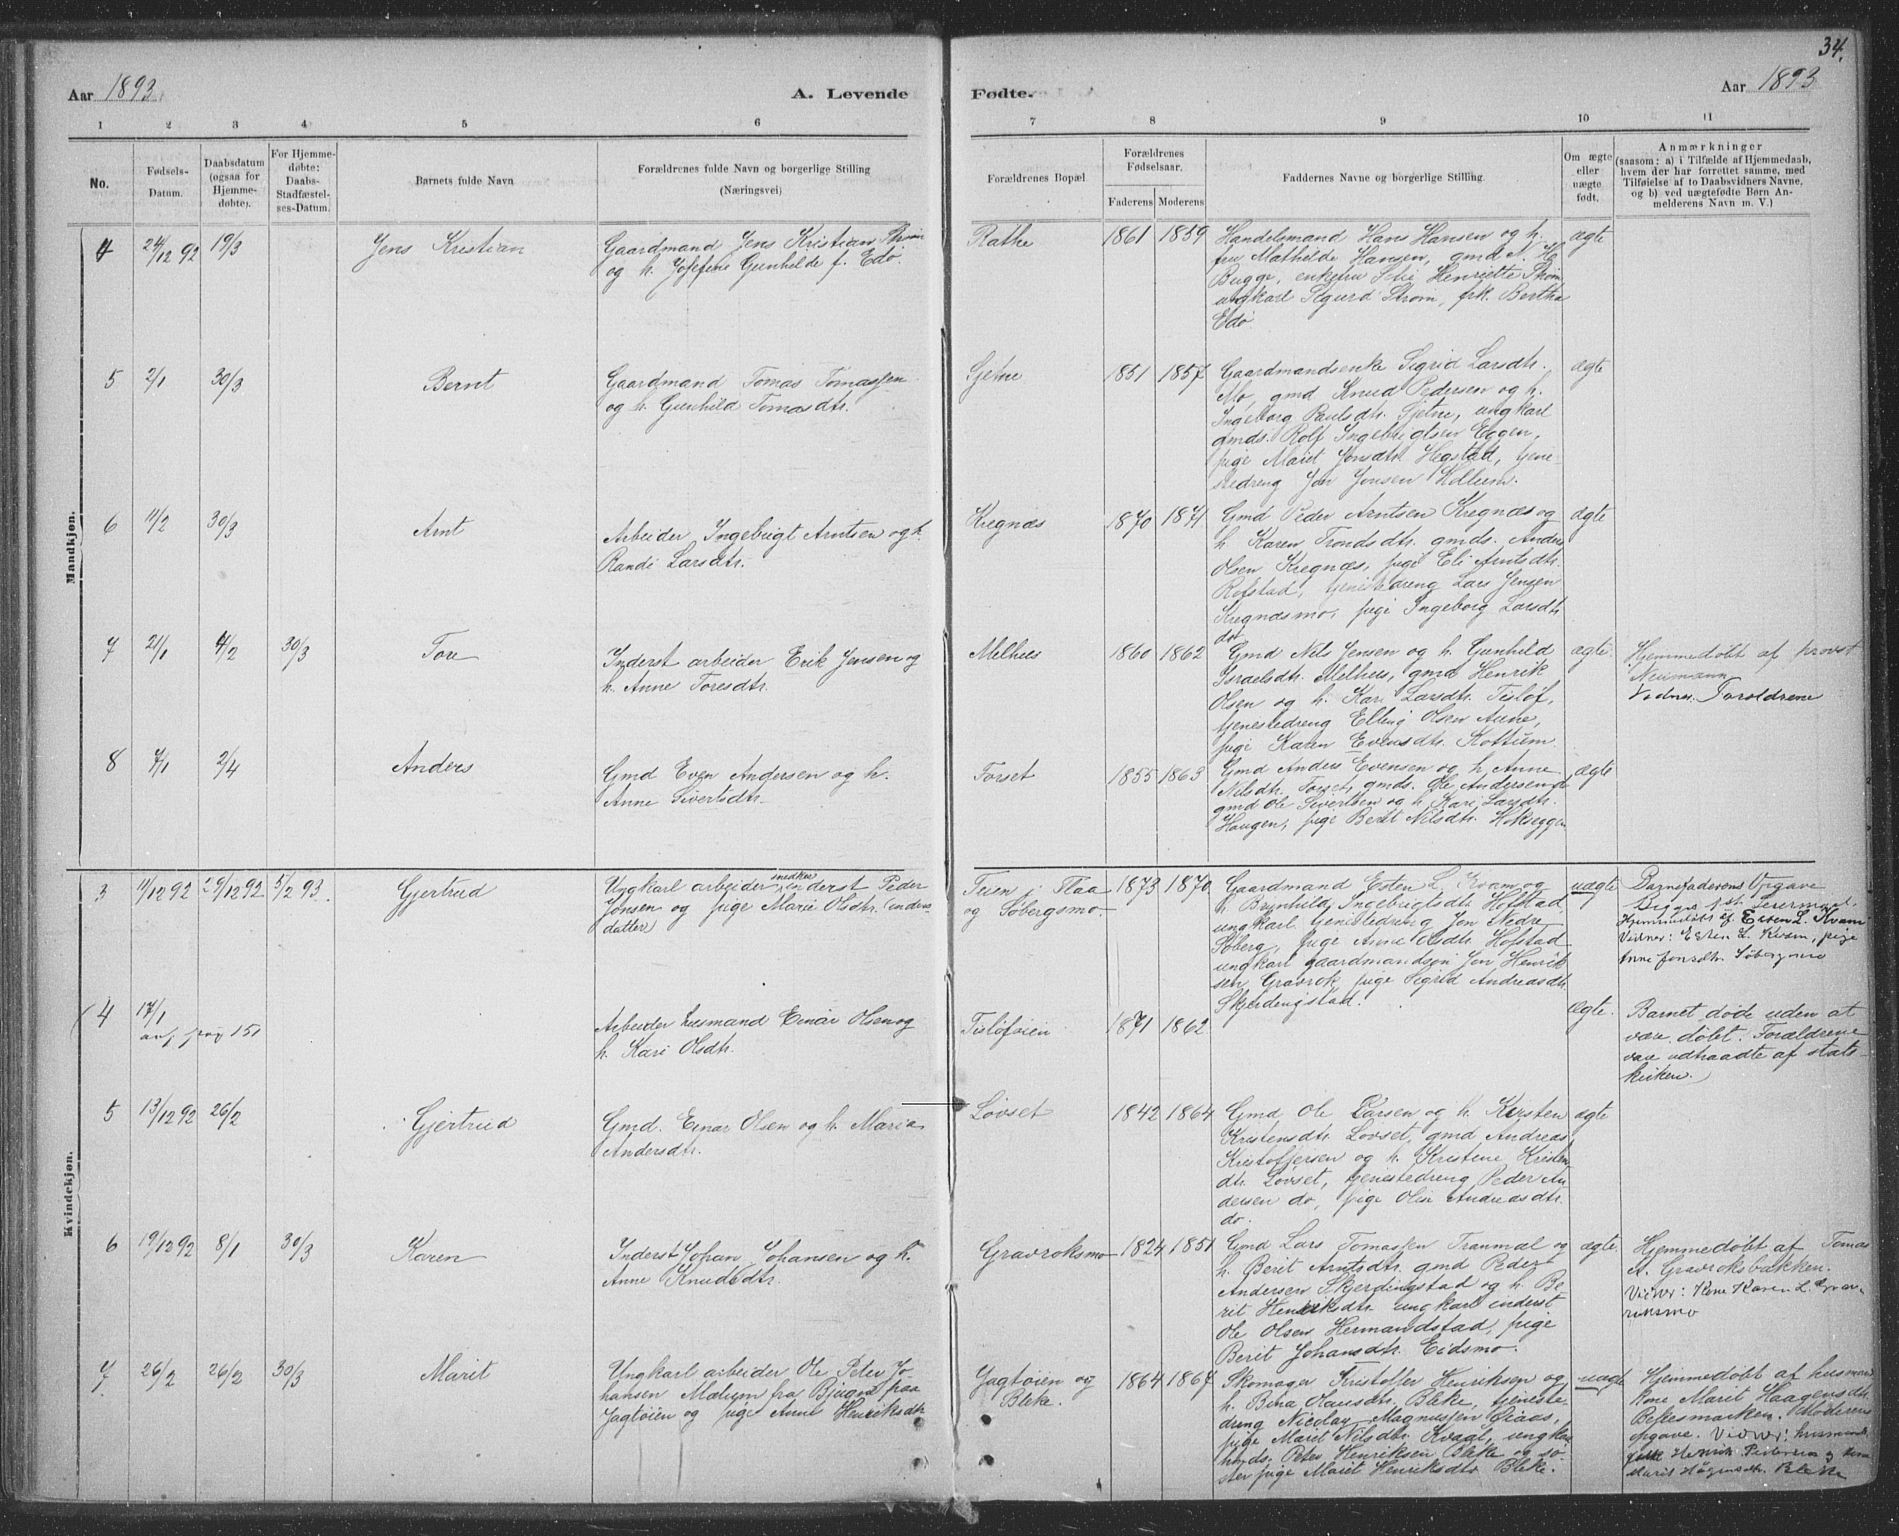 34.
Aar 1893.
A. Levende
Fødte.
Aar 1893
1 2 3 4 5 6 7 8 9 10 11
No.
Fødsels-
Datum.
Daabsdatum
(ogsaa for
Hjemme-
døbte).
For Hjemme-
døbte:
Daabs-
Stadfæstel-
ses-Datum.
Barnets fulde Navn
Forældrenes fulde Navn og borgerlige Stilling
(Næringsvei)
Forældrenes Bopæl.
Forældrenes
Fødselsaar.
Faderens Moderens
Faddernes Navne og borgerlige Stilling.
Om ægte
eller
uægte
født.
Anmærkninger
(saasom: a) i Tilfælde af Hjemmedaab,
hvem der har forrettet samme, med
Tilføielse af to Daabsvidners Navne,
og b) ved uægtefødte Børn An-
melderens Navn m. V.)
Mandkjøn.
4 24/12 92 19/3
Jens Kristian
Gaardmand Jens Kristian Strøm
og h. Josefine Gunhilde f. Edø.
Rathe
1861 1859
Handelsmand Hans Hansen og h.
fru Mathilde Hansen, gmd N. H.
Bugge, enkefru Henriette Strøm
ungkarl Sigurd Strøm, frk. Bertha
Edø
ægte
5 2/1 30/3
Bernt
Gaardmand Tomas Tomassen
og h. Gunhild Tomasdtr.
Gjetne
1851 1857
Gaardmandsenke Sigrid Larsdtr.
Mo, gmd Knud Pedersen og h.
Ingeborg Paulsdtr. Gjetne, ungkarl
gmds. Rolf Ingebrigtsen Eggen,
pige Marit Jonsdtr. Hegstad, tjene-
stedreng Jon Jonsen Kollum.
ægte
6 11/2 30/3
Arnt
Arbeider Ingebrigt Arntsen og h.
Randi Larsdtr.
Kregnæs
1870 1871
Gmd Peder Arntsen Kregnæs og
h. Karen Trondsdtr. gmds. Anders
Olsen Kregnæs, pige Eli Arntsdtr.
Rofstad, tjenestedreng Lars Jensen
Kregnæsmo, pige Ingeborg Larsdtr.
do.
ægte
7 21/1 4/2 30/3
Tore
Inderst arbeider Erik Jensen og
h. Anne Toresdtr.
Melhus
1860 1862
Gmd Nils Jensen og h. Gunhild
Israelsdtr. Melhus, gmd Henrik
Olsen og h. Kari Larsdtr. Tisløf,
tjenestedreng Elling Olsen Aune,
pige Karen Evensdtr. Kottum.
ægte.
Hjemmedøbt af provst
Neumann
Vidner: Forældrene
8 7/1 2/4
Anders
Gmd Even Andersen og h.
Anne Sivertsdtr.
Forset
1855 1863
Gmd Anders Evensen og h. Anne
Nilsdtr. Forset, gmds. Ole Andersen do
gmd Ole Sivertsen og h. Kari Larsdtr.
Haugen, pige Berit Nilsdtr. Hokseggen
ægte
Kvindekjøn.
3 11/12 92 29/12 92 5/2 93.
Gjertrud
Ungkarl arbeider snedker inderst Peder
Jonsen og pige Marie Olsdtr. (inderst-
datter)
Teien i Flaa
og Søbergsmo.
1873 1870
Gaardmand Esten L. Kvam og
h. Brynhild Ingebrigtsdtr. Hofstad
ungkarl tjenestedreng Jon Nedre
Søberg, pige Anne Olsdtr. Hofstad
ungkarl gaardmandssøn Jon Henrik-
sen Gravrok, pige Sigrid Andreasdtr.
Skjerdingstad.
uægte
Barnefaderens Opgave
Begges 1st. Leiermaal.
Hjemmedøbt af Esten L. Kvam
Vidner: Esten L. Kvam, pige
Anne Jonsdtr. Søbergsmo
4 17/1
anf. pag 151
Arbeider husmand Einar Olsen og
h. Kari Olsdtr.
Tisløføien
1871 1862
ægte.
Barnet døde uden at
være døbt. Forældrene
vare udtraadte af stats-
kirken.
5 13/12 92 26/2
Gjertrud
Gmd. Einar Olsen og h. Maria
Andersdtr.
Løvset
1842 1864
Gmd Ole Larsen og h. Kirsten
Kristensdtr. Løvset, gmd Andreas
Kristoffersen og h. Kristine Kristen
dtr. Løvset, tjenestedreng Peder An
dersen do, pige Olin Andreasdtr.
do.
ægte
6 19/12 92 8/1 30/3
Karen
Inderst Johan Johansen og h.
Anne Knudsdtr.
Gravroksmo
1824 1851
Gmd Lars Tomassen Tranmæl og
h. Berit Arntsdtr. gmd Peder
Andersen Skjerdingstad og h. Be-
rit Henriksdtr. ungkarl inderst
Ole Olsen Hermandstad, pige
Berit Johansdtr. Eidsmo.
ægte.
Hjemmedøbt af Tomas
A. Gravroksbakken.
Vidner: Kone Karen L. Grav-
roksmo
7 26/2 26/2 30/3
Marit
Ungkarl arbeider Ole Peter Jo-
hansen Mælum fra Bjugn paa
Jagtøien og pige Anne Henriksdtr.
Jagtøien og
Bleke.
1864 1867
Skomager Kristoffer Henriksen og
h. Olausdtr. Bleke, tjeneste-
dreng Nicolay Magnussen Øiaas,
pige Marit Nilsdtr. Kvaal, ungkarl
hmds. Peter Henriksen Bleke og sø-
ster pige Marit Henriksdtr. Bleke.
uægte
Hjemmedøbt af husman
kone Marit Haagensdtr.
Moderens
opgave. Vidner: husmand
Henrik Pedersen og kone
Marit Haagensdtr. Bleke